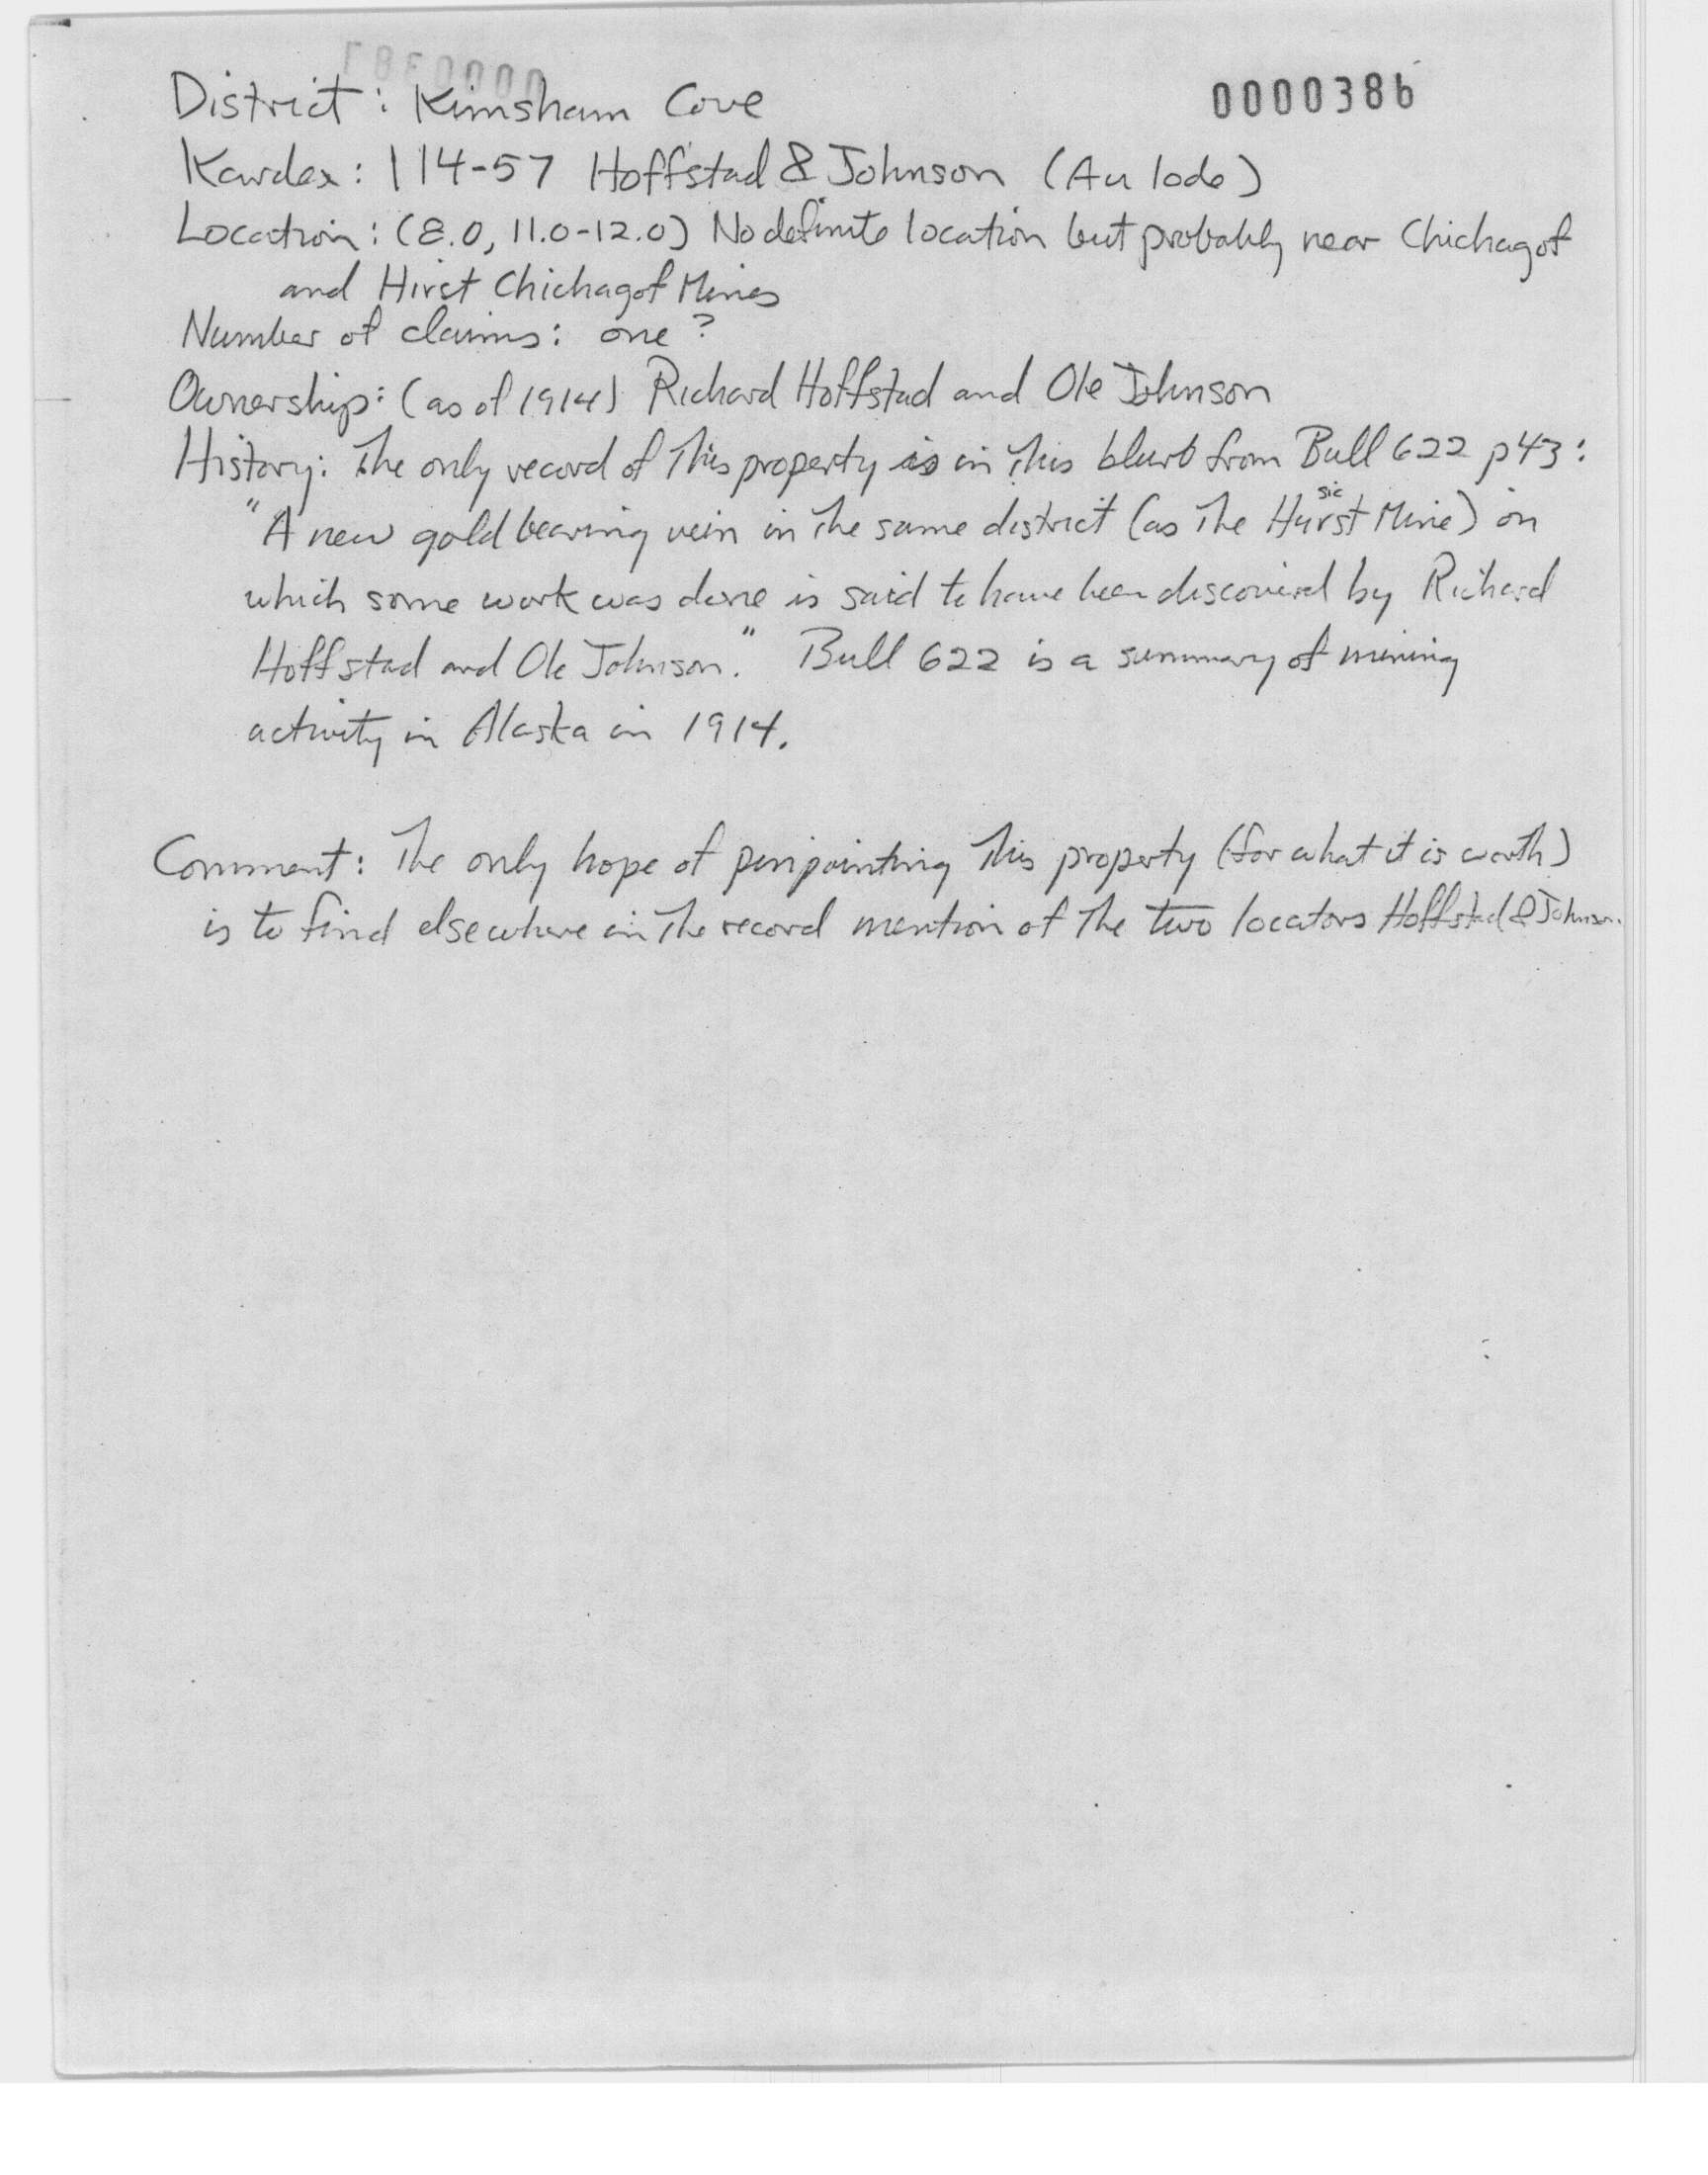 0000386
District: Kimsham Cove
Kardex: 114-57 Hoffstad & Johnson (Au lode)
Location: (8.0, 11.0-12.0) No definite location but probably near Chichagof
and Hirst Chichagof Mines
Number of claims: one?
Ownership: (as of 1914) Richard Hoffstad and Ole Johnson
History: The only record of this property is in this blurb from Bull 622 p43:
sic
"A new gold bearing vein in the same district (as the Hurst Mine) on
which some work was done is said to have been discovered by Richard
Hoffstad and Ole Johnson." Bull 622 is a summary of mining
activity in Alaska in 1914.
Comment: The only hope of pinpointing this property (for what it is worth)
is to find elsewhere in the record mention of the two locators Hoffstad & Johnson.